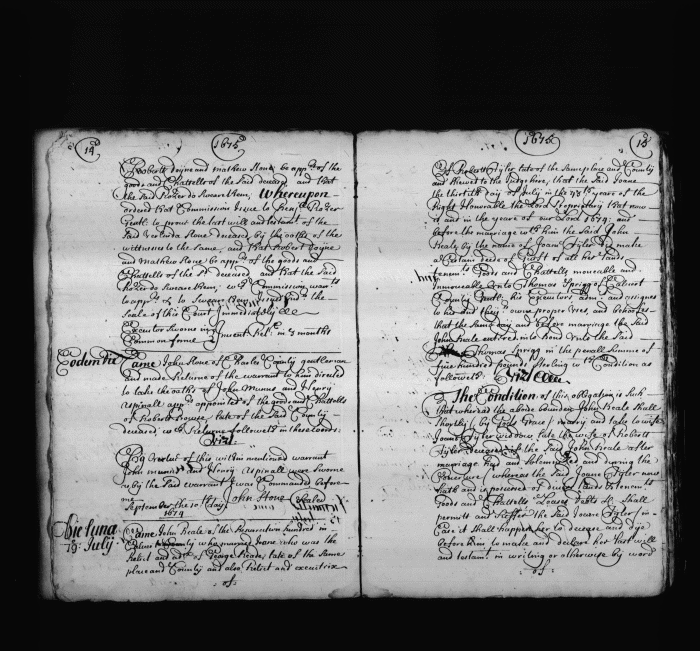 14
1675
Robert doyne and mathew Stone be appr:s of the
goods and Chattells of the said deceased and that
the said Rozer do Sweare them, Whereupon
ordered that Commission issue to Benja: Rozer
Gent: to prove the last will and testamt of the
said Verlinda Stone deceased by the oathes of the
wittnesses to the same, and that Robert doyne
and mathew Stone be appr:s of the goods and
Chattells of the sd deceased and that the said
Rozer do Sweare them; wch Commission
to appr: & to Sweare
Seale of this Court Immediatly &c
Executor Sworne in
Common forme
present
in 3 months
Eodem die
Came John Stone of Charles County gentleman
and made Returne of the warrant to him directed
to take the oathes of John Munns and Henry
Aspinall appr:s appointed of the goods and Chattells
of Robert Prouse late of the said County
deceased; wch Returne followeth in these words:
Vizt
By Vertue of this within mentioned warrant
John munns and Henry Aspinall were Sworne
as by the said warrant I was Commanded before
me September the 10th day
John Stone Sealed
1674
Die luna
19: July
Came John Beale of the
hundred in
Calvert County who married Joane who was the
Relict and
of George Reade late of the same
place and County and also Relict and executrix
of
1675
15
of Robert Tyler late of the same place and County
and shewed to the Judge here, that the said Joane
the thirtith day of July in the 43th yeare of the
Right Honourable the Lord Proprietary that now
is and in the yeare of our Lord 1674: and
before the marriage wth him the said John
Beale by the name of Joane Tyler did make
a Certain deed of Guift of all her lands
tenemts Goods and Chattells moveable and
Immoveable unto Thomas Sprigg of Calvert
County Gent: his Executors adm: and assignes
to his and their owne proper uses, and behoofes
that the same day and before marriage the said
John Beale entered into bond unto the said
Thomas Sprigg in the penall Summe of
five hundred pounds sterling wth Condition as
followeth: Vizt
The Condition of this obligation is such
that whereas the above bounden John Beale shall
shortly (by Gods Grace) marry and take to wife
Joane Tyler widdow late the wife of Robert
Tyler deceased if the said John Beale after
marriage had and solemnized and during the
Coverture (whereas the said Joane Tyler now
hath and is possessed of divers lands & tenemts
Goods and Chattells Leases debts &c shall
permitt and suffer the said Joane Tyler (in
Case it shall happen her to decease and dye
before him to make and declare her last will
and testamt in writing or otherwise by word
of